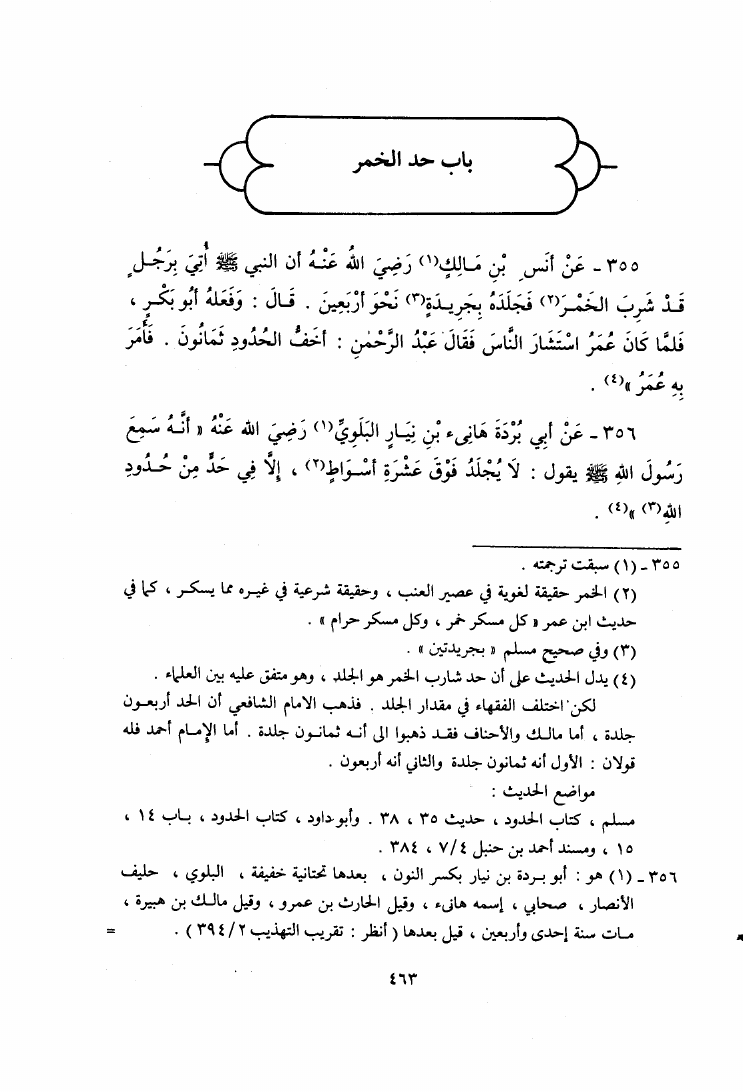 باب حد الخمر
٣٥٥ - عَنْ أَنَسِ بْنِ مَالِكٍ(١) رَضِيَ اللهُ عَنْهُ أن النبي ﷺ أُتِيَ بِرَجُلٍ
قَدْ شَرِبَ الخَمْرَ(٢) فَجَلَدَهُ بِجَرِيدَةٍ(٣) نَحْوَ أَرْبَعِينَ . قَالَ : وَفَعَلَهُ أَبُو بَكْرٍ ،
فَلَمَّا كَانَ عُمَرُ اسْتَشَارَ النَّاسَ فَقَالَ عَبْدُ الرَّحْمٰنِ : أَخَفُّ الحُدُودِ ثَمَانُونَ . فَأَمَرَ
بِهِ عُمَرُ »(٤) .
٣٥٦ - عَنْ أَبِي بُرْدَةَ هَانِىء بْنِ نِيَارٍ البَلَوِيِّ(١) رَضِيَ الله عَنْهُ « أَنَّهُ سَمِعَ
رَسُولَ اللهِ ﷺ يقول : لَا يُجْلَدُ فَوْقَ عَشْرَةِ أَسْوَاطٍ(٢) ، إِلَّا فِي حَدٍّ مِنْ حُدُودِ
اللهِ(٣) »(٤) .
٣٥٥ - (١) سبقت ترجمته .
(٢) الخمر حقيقة لغوية في عصير العنب ، وحقيقة شرعية في غيره مما يسكر ، كما في
حديث ابن عمر « كل مسكر خمر ، وكل مسكر حرام » .
(٣) وفي صحيح مسلم « بجريدتين » .
(٤) يدل الحديث على أن حد شارب الخمر هو الجلد ، وهو متفق عليه بين العلماء .
لكن اختلف الفقهاء في مقدار الجلد . فذهب الامام الشافعي أن الحد أربعون
جلدة ، أما مالك والأحناف فقد ذهبوا الى أنه ثمانون جلدة . أما الإمام أحمد فله
قولان : الأول أنه ثمانون جلدة والثاني أنه أربعون .
مواضع الحديث :
مسلم ، كتاب الحدود ، حديث ٣٥ ، ٣٨ . وأبو داود ، كتاب الحدود ، باب ١٤ ،
١٥ ، ومسند أحمد بن حنبل ٧/٤ ، ٣٨٤ .
٣٥٦ - (١) هو : أبو بردة بن نيار بكسر النون ، بعدها تحتانية خفيفة ، البلوي ، حليف
الأنصار ، صحابي ، إسمه هانىء ، وقيل الحارث بن عمرو ، وقيل مالك بن هبيرة ،
مات سنة إحدى وأربعين ، قيل بعدها ( أنظر : تقريب التهذيب ٣٩٤/٢ ) . =
٤٦٣